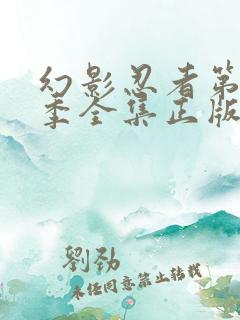 幻影忍者第
季全集正版
劉勁
未经同意禁止转载